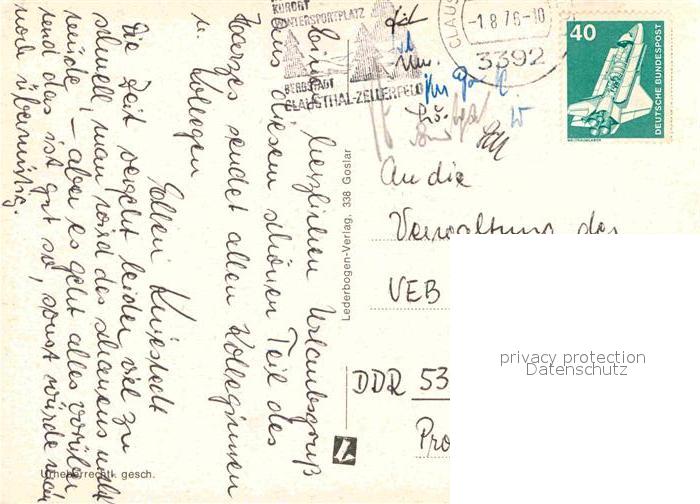 KURORT
WINTERSPORTPLATZ
BERGSTADT
CLAUSTHAL-ZELLERFELD
CLAUS
-1.8.76-10
3392
40
DEUTSCHE BUNDESPOST
An die
Verwaltung des
VEB
DDR 53
Pro
privacy protection
Datenschutz
Lederbogen-Verlag, 338 Goslar
herzlichen Urlaubsgruß
aus diesem schönen Teil des
Harzes sendet allen Kolleginnen
u. Kollegen
Ellen
Die Zeit vergeht leider viel zu
schnell, man wird des schauens nicht
müde! – aber es geht alles vorüber
und das ist gut so, sonst würde man
noch übermütig.
Urheberrechtl. gesch.